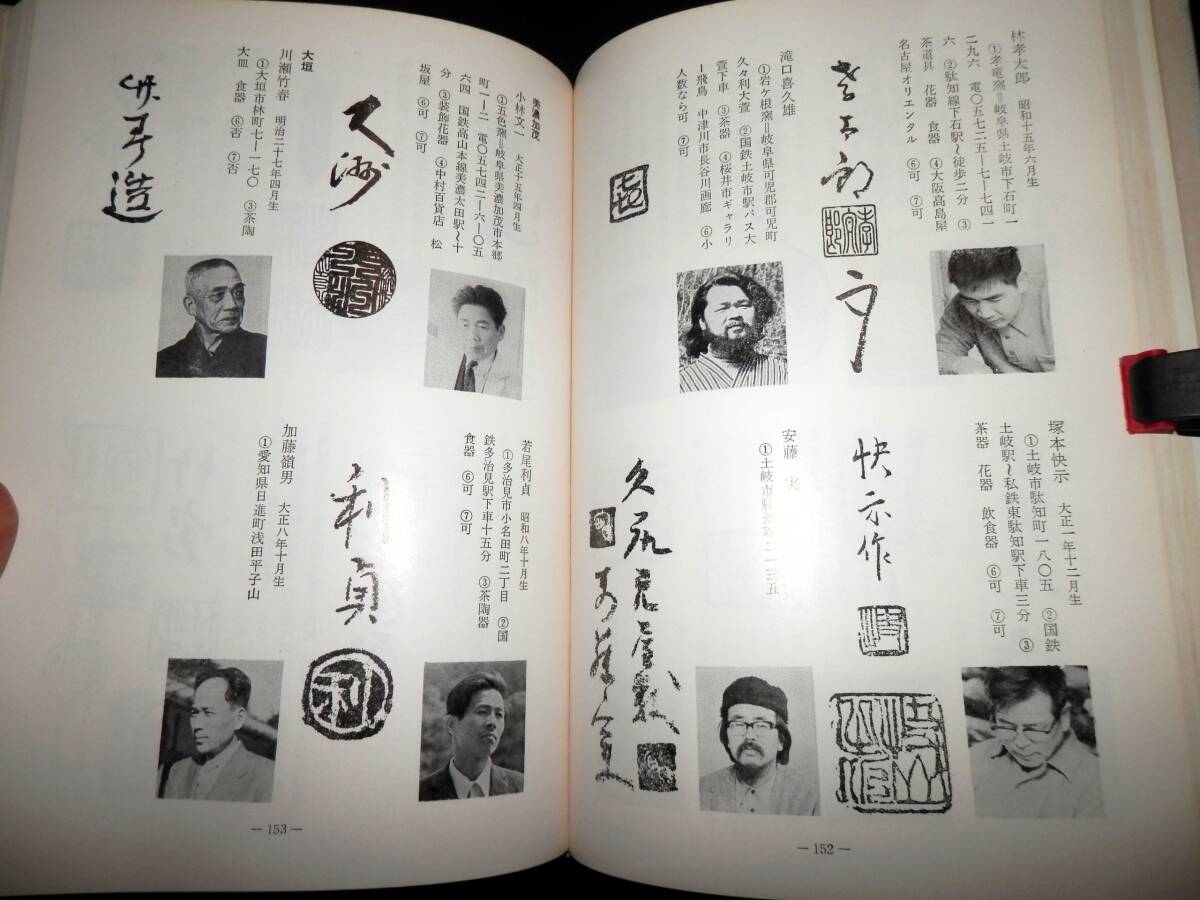 林孝太郎　昭和十五年六月生
①孝竜窯＝岐阜県土岐市下石町一
二九六　電〇五七二五ー七ー七四一
六　②駄知線下石駅〜徒歩二分　③
茶道具　花器　食器　④大阪高島屋
名古屋オリエンタル　⑥可　⑦可
孝太郎
塚本快示　大正一年十二月生
①土岐市駄知町一八〇五　②国鉄
土岐駅〜私鉄東駄知駅下車三分　③
茶器　花器　飲食器　⑥可　⑦可
快示作
滝口喜久雄
①岩ケ根窯＝岐阜県可児郡可児町
久々利大萱　②国鉄土岐市駅バス大
萱下車　③茶器　④桜井市ギャラリ
ー飛鳥　中津川市長谷川画廊　⑥小
人数なら可　⑦可
安藤　実
①土岐市
久尻
— 152 —
美濃加茂
小林文一　大正十五年四月生
①五色窯＝岐阜県美濃加茂市本郷
町一ー二　電〇五七四二ー六ー〇五
六四　国鉄高山本線美濃太田駅〜十
分　③装飾花器　④中村百貨店　松
坂屋　⑥可　⑦可
若尾利貞　昭和八年十月生
①多治見市小名田町二丁目　②国
鉄多治見駅下車十五分　③茶陶器
食器　⑥可　⑦可
利貞
利
大垣
川瀬竹春　明治二十七年四月生
①大垣市林町七ー一七〇　③茶陶
大皿　食器　⑥否　⑦否
竹春造
加藤嶺男　大正八年十月生
①愛知県日進町浅田平子山
— 153 —